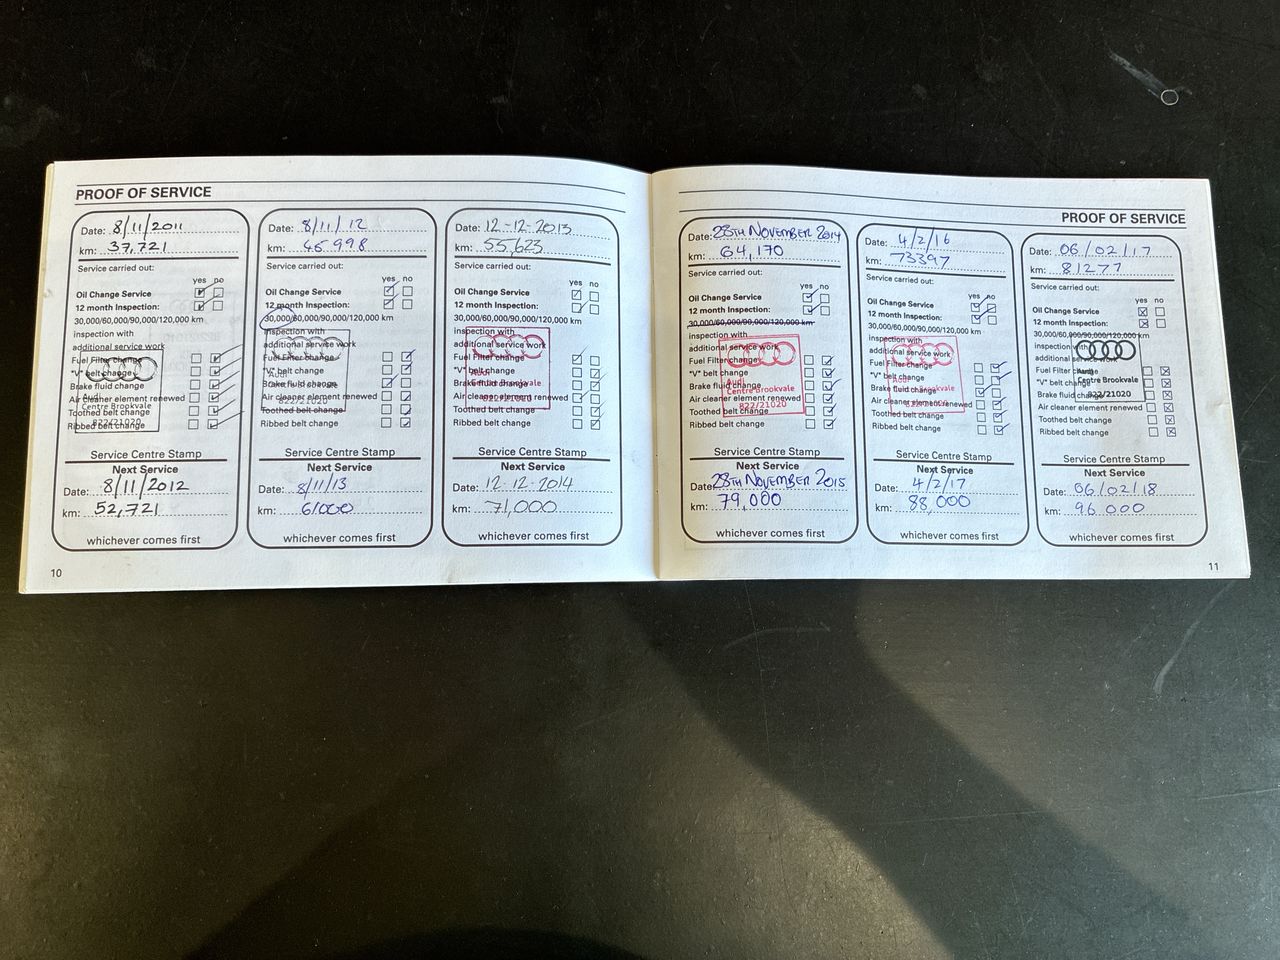 PROOF OF SERVICE
Date: 8/11/2011
km: 37,721
Service carried out:
yes no
Oil Change Service
12 month Inspection:
30,000/60,000/90,000/120,000 km
inspection with
additional service work
Fuel Filter change
"V" belt change
Brake fluid change
Air cleaner element renewed
Toothed belt change
Ribbed belt change
Audi
Centre Brookvale
822/21020
Service Centre Stamp
Next Service
Date: 8/11/2012
km: 52,721
whichever comes first
Date: 8/11/12
km: 45998
Service carried out:
yes no
Oil Change Service
12 month Inspection:
30,000/60,000/90,000/120,000 km
inspection with
additional service work
Fuel Filter change
"V" belt change
Brake fluid change
Air cleaner element renewed
Toothed belt change
Ribbed belt change
Audi
822/21020
Service Centre Stamp
Next Service
Date: 8/11/13
km: 61000
whichever comes first
Date: 12-12-2013
km: 55,623
Service carried out:
yes no
Oil Change Service
12 month Inspection:
30,000/60,000/90,000/120,000 km
inspection with
additional service work
Fuel Filter change
"V" belt change
Brake fluid change
Air cleaner element renewed
Toothed belt change
Ribbed belt change
Audi
Centre Brookvale
822/21020
Service Centre Stamp
Next Service
Date: 12-12-2014
km: 71,000
whichever comes first
10
PROOF OF SERVICE
Date: 28TH NOVEMBER 2014
km: 64,170
Service carried out:
yes no
Oil Change Service
12 month Inspection:
30,000/60,000/90,000/120,000 km
inspection with
additional service work
Fuel Filter change
"V" belt change
Brake fluid change
Air cleaner element renewed
Toothed belt change
Ribbed belt change
Audi
Centre Brookvale
822/21020
Service Centre Stamp
Next Service
Date: 28TH NOVEMBER 2015
km: 79,000
whichever comes first
Date: 4/2/16
km: 73397
Service carried out:
yes no
Oil Change Service
12 month Inspection:
30,000/60,000/90,000/120,000 km
inspection with
additional service work
Fuel Filter change
"V" belt change
Brake fluid change
Air cleaner element renewed
Toothed belt change
Ribbed belt change
Audi
Centre Brookvale
822/21020
Service Centre Stamp
Next Service
Date: 4/2/17
km: 88,000
whichever comes first
Date: 06/02/17
km: 81277
Service carried out:
yes no
Oil Change Service
12 month Inspection:
30,000/60,000/90,000/120,000 km
inspection with
additional service work
Fuel Filter change
"V" belt change
Brake fluid change
Air cleaner element renewed
Toothed belt change
Ribbed belt change
Audi
Centre Brookvale
822/21020
Service Centre Stamp
Next Service
Date: 06/02/18
km: 96 000
whichever comes first
11